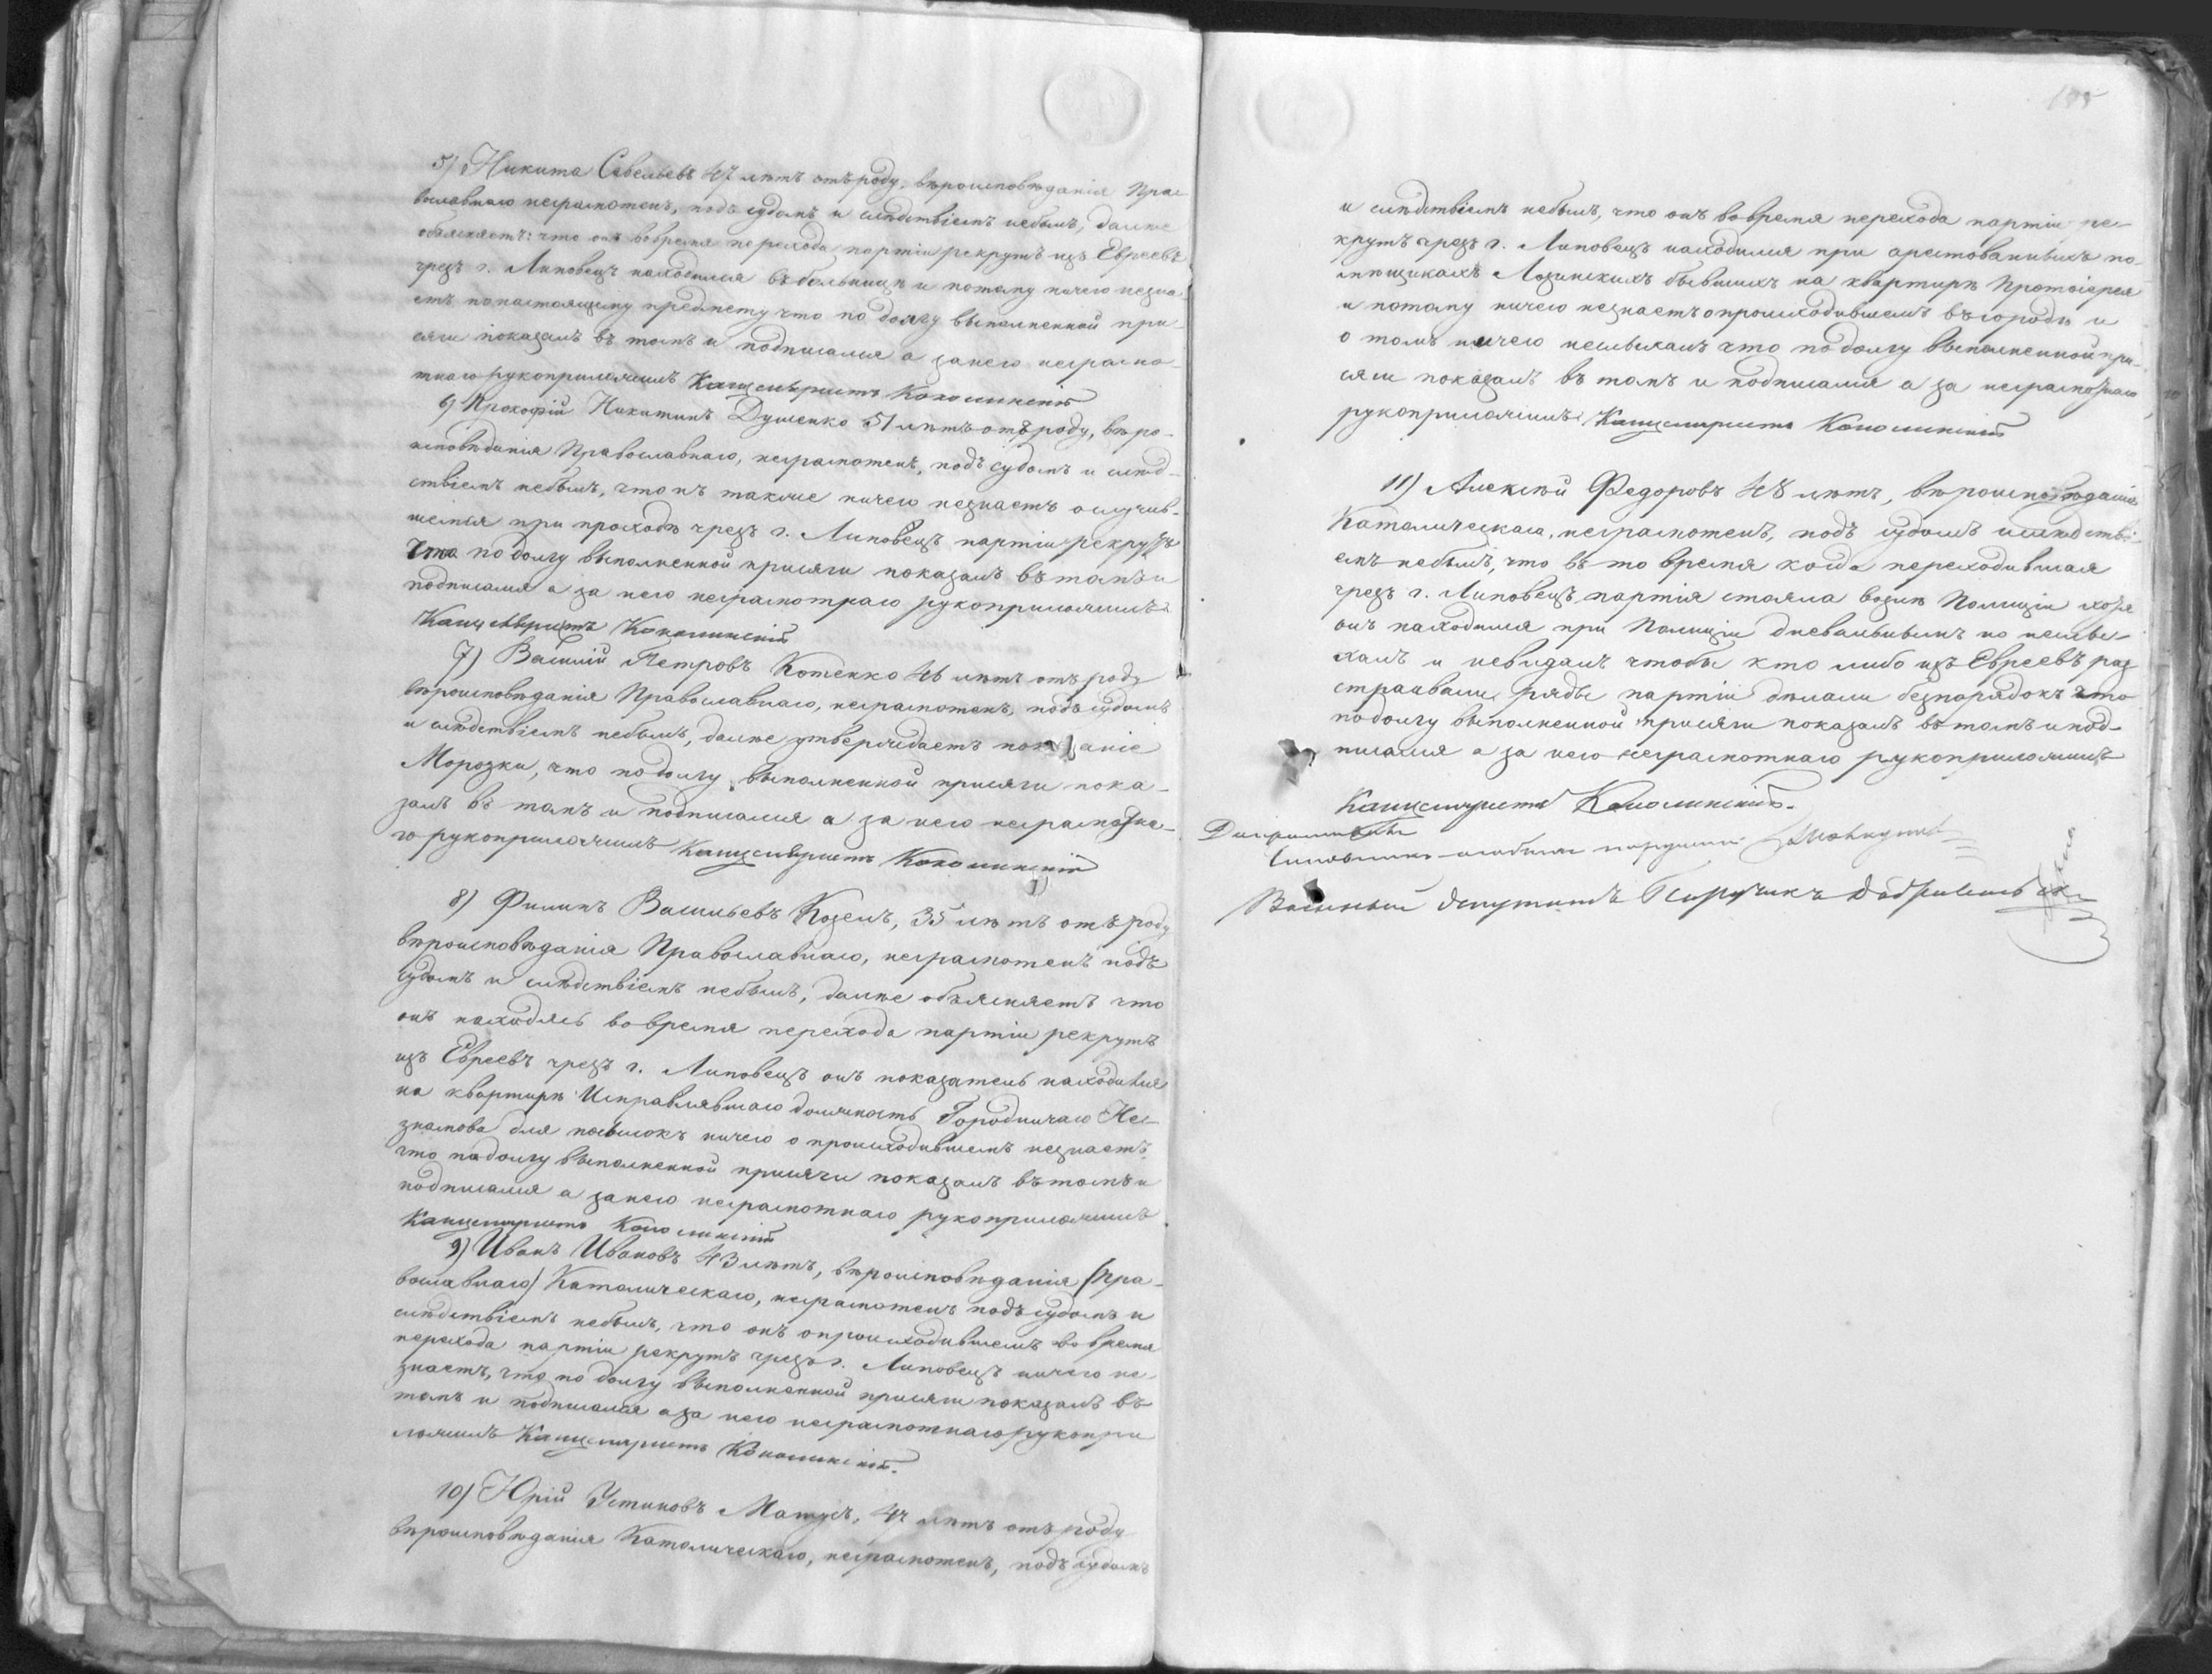 5) Никита Савельевъ 47 лѣтъ отъ роду, вѣроисповѣданія Пра-
вославнаго неграмотенъ, подъ судомъ и слѣдствіемъ небылъ, далѣе
объясняетъ: что онъ вовремя перехода партіи рекрутъ изъ Евреевъ
чрезъ г. Липовецъ находился въ больницѣ и потому ничего незна-
етъ понастоящему предмету что по долгу выполненной при-
сяги показалъ въ томъ и подписался а занего неграмо-
тнаго рукоприложилъ Канцеляристъ
6) Прокофій Никитинъ Душенко 51 лѣтъ отъ роду, вѣро-
исповѣданія Православнаго, неграмотенъ, подъ судомъ и слѣд-
ствіемъ небылъ, что нъ также ничего незнаетъ ослучив-
шемся при проходѣ чрезъ г. Липовецъ партіи рекрутъ
что по долгу выполненной присяги показалъ въ томъ и
подписался а за него неграмотнаго рукоприложилъ
Канцеляристъ
7) Василій Петровъ Котенко 46 лѣтъ отъ роду
вѣроисповѣданія Православнаго, неграмотенъ, подъ судомъ
и слѣдствіемъ небылъ, далѣе утверждаетъ показаніе
Морозки, что по долгу выполненной присяги пока-
залъ въ томъ и подписался а за него неграмотна-
го рукоприложилъ Канцеляристъ
8) Филипъ Васильевъ Козелъ, 35 лѣтъ отъ роду
вѣроисповѣданія Православнаго, неграмотенъ подъ
судомъ и слѣдствіемъ небылъ, далѣе объясняетъ что
онъ находясь вовремя перехода партіи рекрутъ
изъ Евреевъ чрезъ г. Липовецъ онъ показатель находился
на квартирѣ Исправлявшаго должность Городничаго Нез-
намова для посылокъ ничего о происходившемъ незнаетъ
что подолгу выполненной присяги показалъ въ томъ и
подписался а занего неграмотнаго рукоприложилъ
Канцеляристъ
9) Иванъ Ивановъ 43 лѣтъ, вѣроисповѣданія (Пра-
вославнаго) Католическаго, неграмотенъ подъ судомъ и
слѣдствіемъ небылъ, что онъ опроисходившемъ во время
перехода партіи рекрутъ чрезъ г. Липовецъ ничего не-
знаетъ, что по долгу выполненной присяги показалъ въ
томъ и подписался а за него неграмотнаго рукопри
ложилъ Канцеляристъ
10) Юрій Устиновъ Матусъ, 47 лѣтъ отъ роду
вѣроисповѣданія Католическаго, неграмотенъ, подъ судомъ
и слѣдствіемъ небылъ, что онъ вовремя перехода партіи ре-
крутъ чрезъ г. Липовецъ находился при арестованныхъ по-
мѣщикахъ Лозинскихъ бывшихъ на квартирѣ Протоіерея
и потому ничего незнаетъ опроисходившемъ въ городѣ и
о томъ ничего неслыхалъ что по долгу выполненной при-
сяги показалъ въ томъ и подписался а за неграмотнаго
рукоприложилъ Канцеляристъ
11) Алексѣй Федоровъ 48 лѣтъ, вѣроисповѣданія
Католическаго, неграмотенъ, подъ судомъ и слѣдстві-
емъ небылъ, что въ то время когда переходившая
чрезъ г. Липовецъ партія стояла возлѣ Полиціи хотя
онъ находился при Полиціи дневальнымъ но неслы-
халъ и невидалъ чтобы кто либо изъ Евреевъ раз
страивали ряды партіи дѣлали безпорядокъ что
подолгу выполненной присяги показалъ въ томъ и под-
писался а за него неграмотнаго рукоприложилъ
Канцеляристъ
Чиновникъ особыхъ порученій
Военный депутатъ Поручикъ